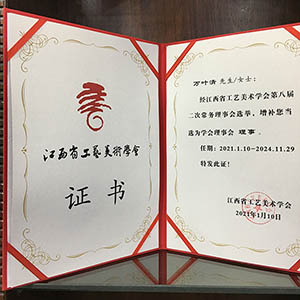 江西省工艺美術學會
证书
万叶清 先生/女士：
经江西省工艺美术学会第八届
二次常务理事会选举，增补您当
选为学会理事会 理事 。
任期：2021.1.10-2024.11.29
特发此证！
江西省工艺美术学会
2021年1月10日